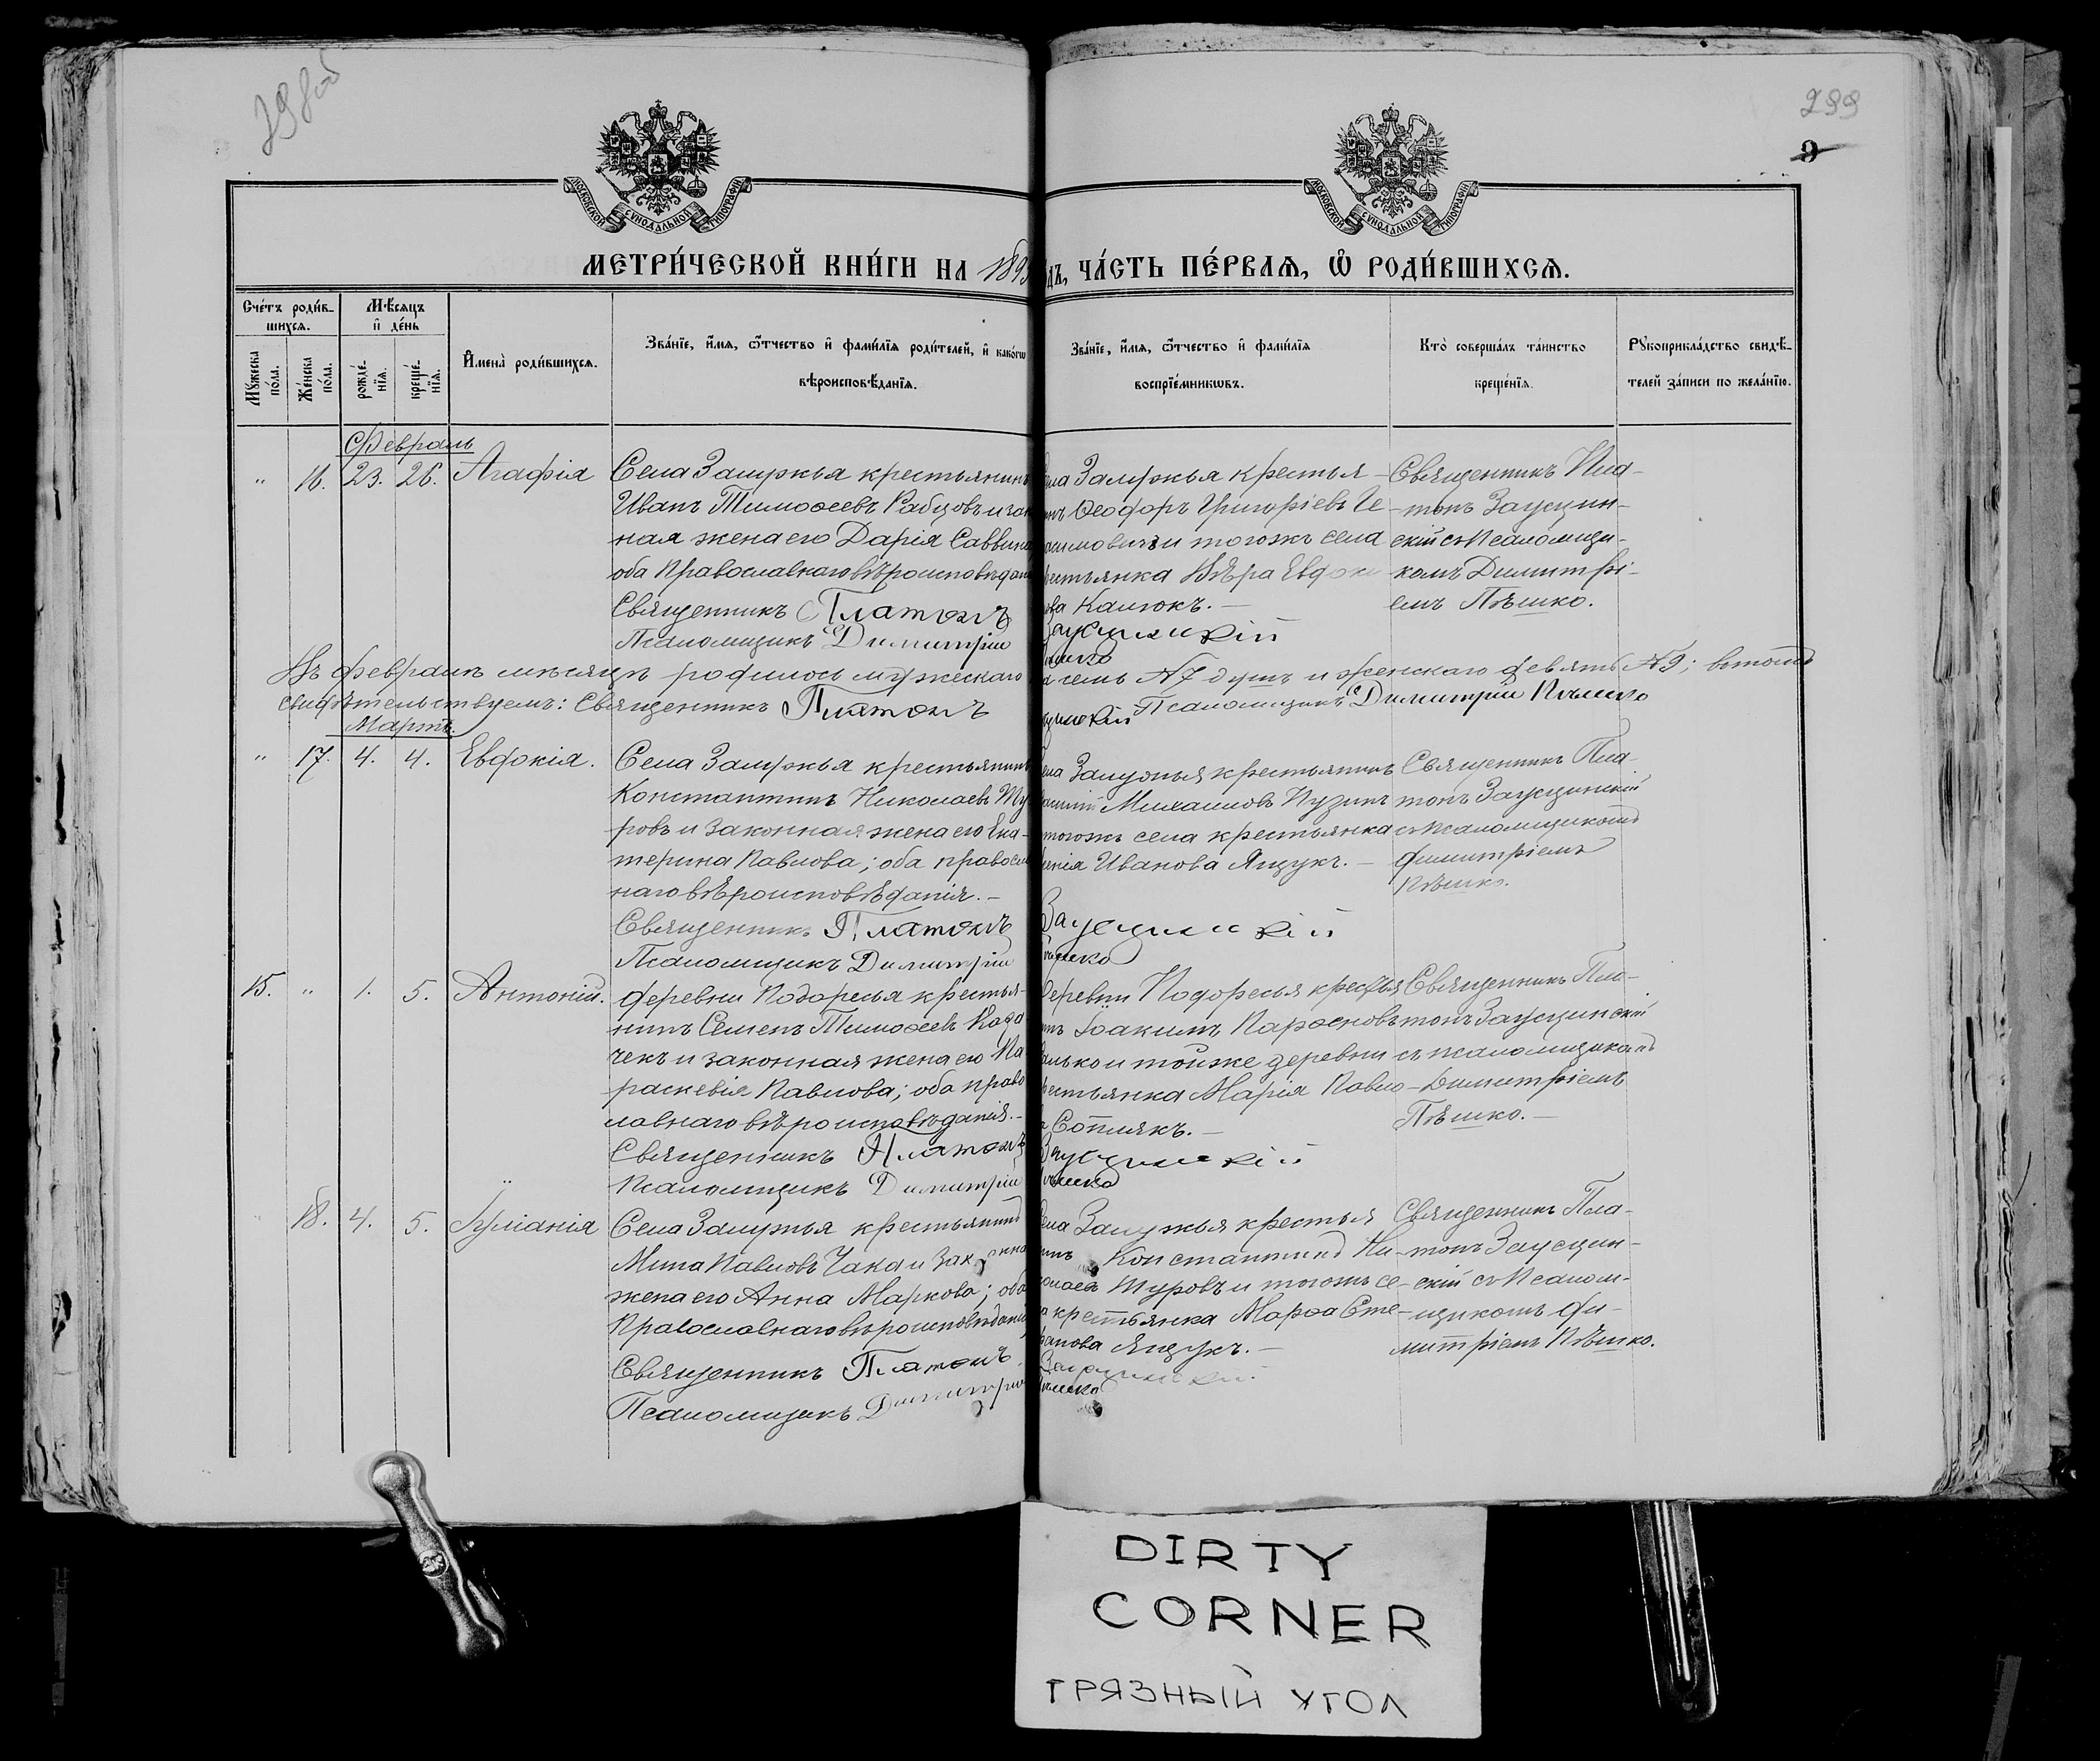 298об
299
9
МОСКОВСКОЙ СУНОДАЛЬНОЙ ТИПОГРАФІИ
МОСКОВСКОЙ СУНОДАЛЬНОЙ ТИПОГРАФІИ
МЕТРИ́ЧЕСКОЙ КНИ́ГИ НА 1895
дъ, ЧА́СТЬ ПЕ́РВАѦ, Ѽ РОДИ́ВШИХСѦ.
Сче́тъ роди́в-
шихсѧ.
Мѣ́сѧцъ
и҆ де́нь
Мꙋ́жеска по́ла.
Же́нска по́ла.
рожде́-
нїѧ.
креще́-
нїѧ.
И҆мена̀ роди́вшихсѧ.
Зва́нїе, и҆́мѧ, ѻ҆́тчество и҆ фами́лїѧ роди́телей, и҆ како́гѡ
вѣроисповѣ́данїѧ.
Зва́нїе, и҆́мѧ, ѻ҆́тчество и҆ фами́лїѧ
воспрїе́мникѡвъ.
Кто̀ соверша́лъ та́инство
креще́нїѧ.
Рꙋкоприкла́дство свидѣ́-
телей за́писи по жела́нїю.
Февраль
" 16. 23. 26. Агафія
Села Залужья крестьянинъ
Иванъ Тимофеевъ Рабцовъ и зак
ная жена его Дарія Саввина
оба Православнаго вѣроисповѣдан
Священникъ Платонъ
Псаломщикъ Димитрій
ела Залужья крестья-
нъ Феодоръ Григоріевъ Ге-
асимовичъ и тогожъ села
рестьянка Вѣра Евдоки
ова Калюкъ.-
Заусцинскій
ѣшко
Священникъ Пла-
тонъ Заусцин-
скій съ Псаломщи-
комъ Димитрі-
емъ Пѣшко.
Въ Февралѣ мѣсяцѣ родилось мужескаго
семь №7 душъ и женскаго девять №9; въ томъ
свидѣтельствуемъ: Священникъ Платонъ
цинскій Псаломщикъ Димитрій Пѣшко
Мартъ.
" 17. 4. 4. Евдокія.
Села Залужья крестьянинъ
Константинъ Николаевъ Ту
ровъ и законная жена его Ека-
терина Павлова; оба правосла
наго вѣроисповѣданія.-
Священникъ Платонъ
Псаломщикъ Димитрій
ела Залужья крестьянинъ
Михаиловъ Пузикъ
тогожъ села крестьянка
енія Иванова Ящукъ.-
Заусцинскій
ѣшко
Священникъ Пла-
тонъ Заусцинскій
съ псаломщикомъ
Димитріемъ
Пѣшко.
15. " 1. 5. Антоній.
Деревни Подоресья крестья-
нинъ Семенъ Тимофеевъ
чекъ и законная жена его Па
раскевія Павлова; оба право
лавнаго вѣроисповѣданія.-
Священникъ Платонъ
Псаломщикъ Димитрій
еревни Подоресья крестья
нъ Іоакимъ Парфеновъ
и тойже деревни
рестьянка Марія Павло-
Сотлякъ.-
Заусцинскій
ѣшко
Священникъ Пла-
тонъ Заусцинскій
съ псаломщикомъ
Димитріемъ
Пѣшко.-
" 18. 4. 5. Іуліанія
Села Залужья крестьянинъ
Мина Павловъ Чака и законна
жена его Анна Маркова; оба
Православнаго вѣроисповѣданія
Священникъ Платонъ
Псаломщикъ Димитрій
ела Залужья крестья
инъ Константинъ Ни-
олаевъ Туровъ и тогожъ се-
а крестьянка Марфа Сте-
фанова Ящукъ.-
Заусцинскій
ѣшко
Священникъ Пла-
тонъ Заусцин-
скій съ Псалом-
щикомъ Ди-
митріемъ Пѣшко.
DIRTY
CORNER
ГРЯЗНЫЙ УГОЛ